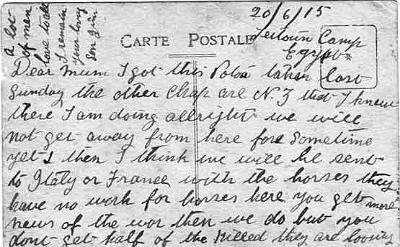 20/6/15
Zeitown Camp
Egypt
CARTE POSTALE
Dear Mum I got this taken last
Sunday the other Chap are N.Z that I knew
there I am doing allright we will
not get away from here fore Sometime
yet & then I think we will be sent
to Italy or France with the horses they
have no work for horses here you get more
news of the wor then we do but you
dont get half of the Killed they are
a lot
of men
love to all
I remain
your loving
Son Jim